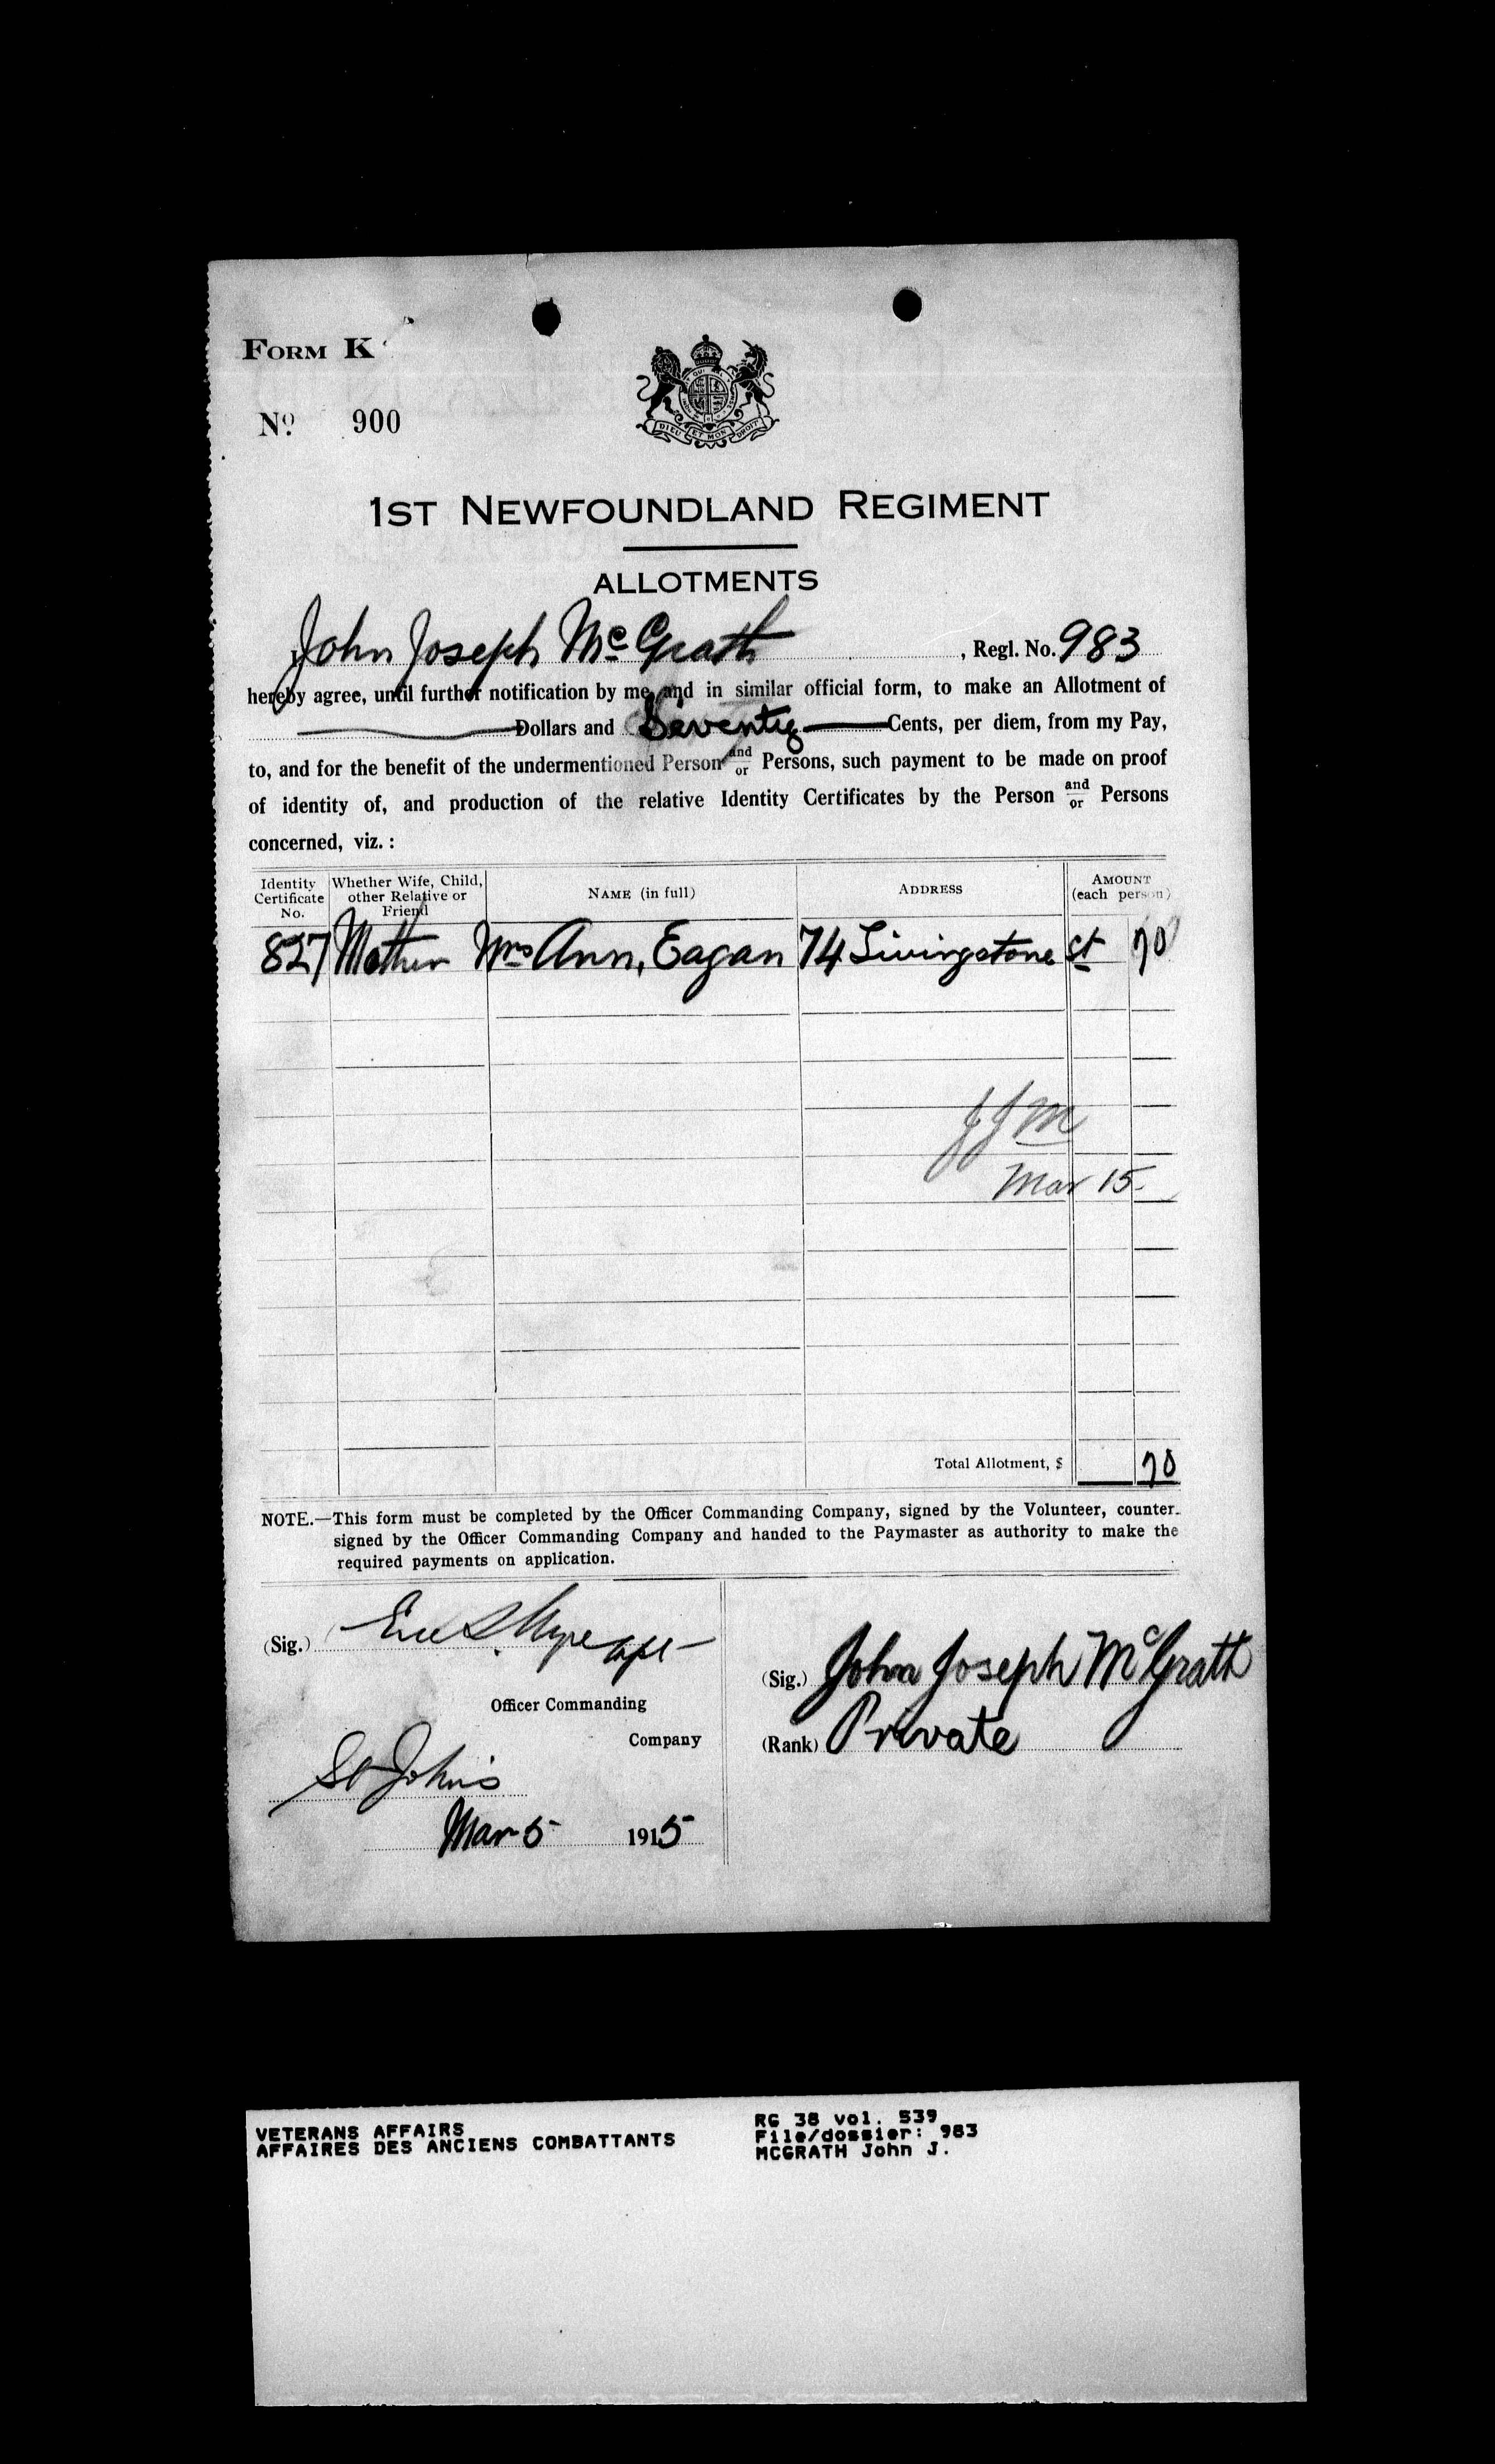 FORM K
Nº 900
DIEU ET MON DROIT
1ST NEWFOUNDLAND REGIMENT
ALLOTMENTS
John Joseph McGrath, Regl. No. 983
hereby agree, until further notification by me, and in similar official form, to make an Allotment of
Dollars and Seventy Cents, per diem, from my Pay,
to, and for the benefit of the undermentioned Person and/or Persons, such payment to be made on proof
of identity of, and production of the relative Identity Certificates by the Person and/or Persons
concerned, viz. :
Identity Certificate No. Whether Wife, Child, other Relative or Friend NAME (in full) ADDRESS AMOUNT (each person)
827 Mother Mrs Ann, Eagan 74 Livingstone St 70
JJM
Mar 15
Total Allotment, $ 70
NOTE.—This form must be completed by the Officer Commanding Company, signed by the Volunteer, counter-
signed by the Officer Commanding Company and handed to the Paymaster as authority to make the
required payments on application.
(Sig.) Capt
Officer Commanding
Company
(Sig.) John Joseph McGrath
(Rank) Private
St John's
Mar 5 1915
VETERANS AFFAIRS
AFFAIRES DES ANCIENS COMBATTANTS
RG 38 vol. 539
File/dossier: 983
MCGRATH John J.